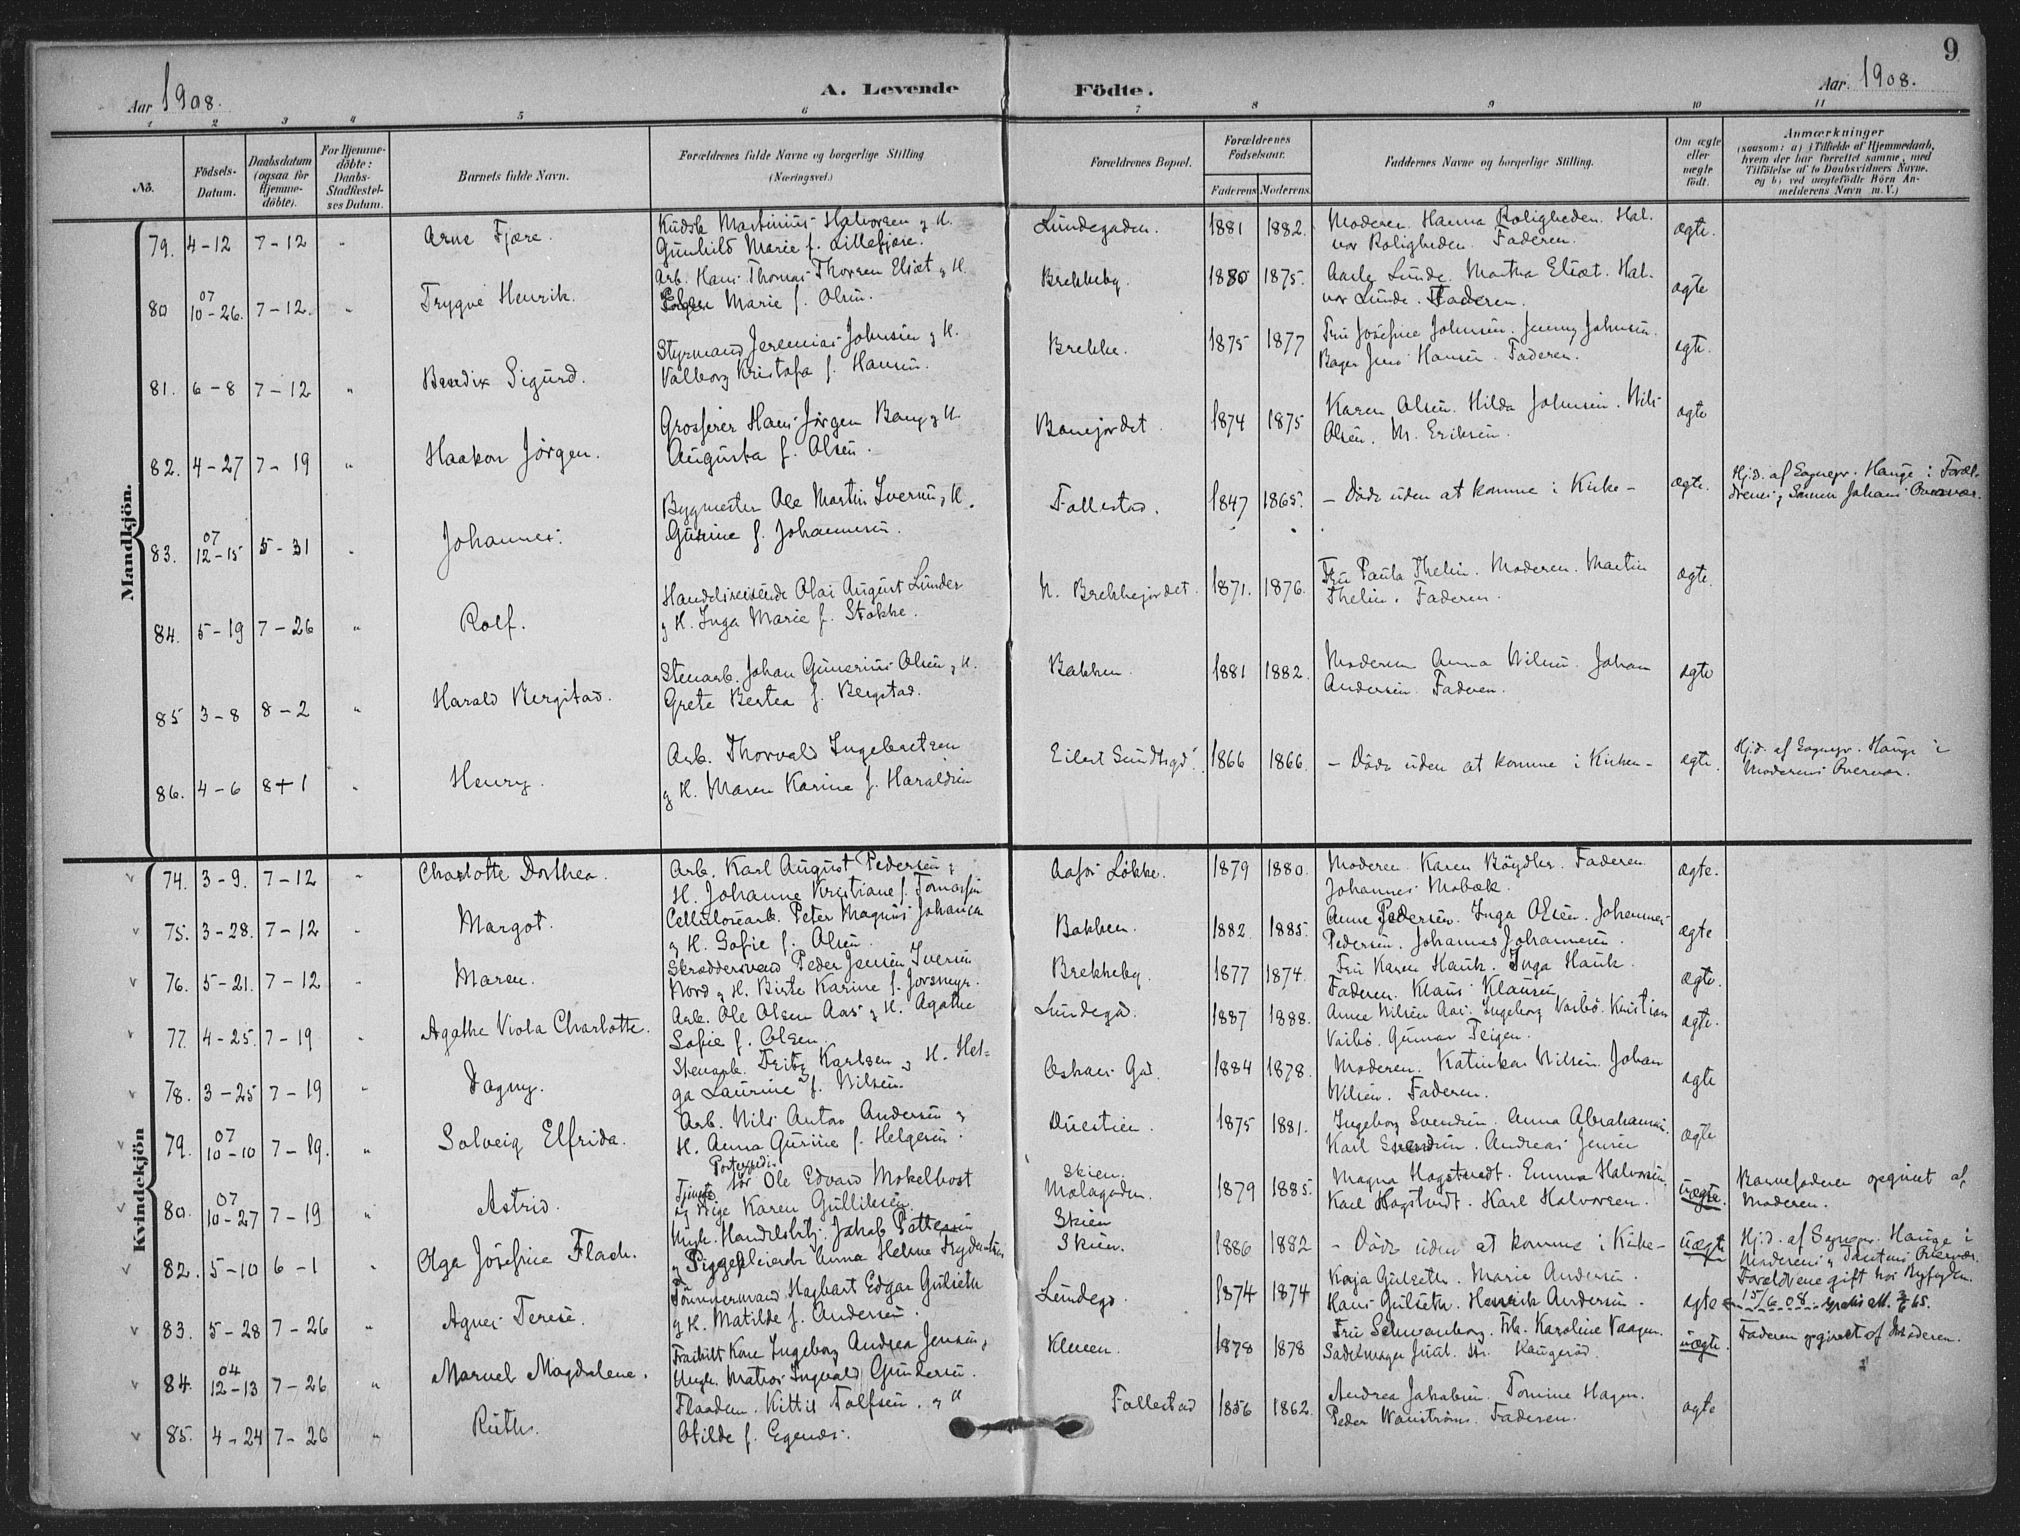 9
Aar 1908.
A. Levende
Födte.
Aar 1908.
1 2 3 4 5 6 7 8 9 10 11
No.
Födsels-
Datum.
Daabsdatum
(ogsaa for
Hjemme-
döbte).
For Hjemme-
döbte:
Daabs-
Stadfæstel-
ses Datum.
Barnets fulde Navn.
Forældrenes fulde Navne og borgerlige Stilling
(Næringsvei.)
Forældrenes Bopæl.
Forældrenes
Födselsaar.
Faderens Moderens.
Faddernes Navne og borgerlige Stilling.
Om ægte
eller
uægte
födt.
Anmærkninger
(saasom: a) i Tilfælde af Hjemmedaab,
hvem der har forrettet samme, med
Tilföielse af to Daabsvidners Navne,
og b) ved uægtefödte Börn An-
melderens Navn m. V.)
Mandkjön.
79. 4-12 7-12 " Arne Fjære.
Martinius Halvorsen & H.
Gunhild Marie f. Lillefjære.
Lundegaden. 1881 1882.
Moderen. Hanna Roligheden. Hal-
vor Roligheden. Faderen.
ægte.
80 07
10-26. 7-12. " Trygve Henrik.
Arb. Hans Thomas Thorsen Eliæt & H.
Marie f. Olsen.
Brekkeby. 1880 1875.
Lunde. Martha Eliæt. Hal-
vor Lunde. Faderen.
ægte
81. 6-8 7-12 " Bendix Sigurd.
Styrmand Jeremias Johnsen & H.
Valborg Kristofa f. Hansen.
Brekke. 1875 1877
Fru Josefine Johnsen. Jenny Johnsen.
Bager Jens Hansen. Faderen.
ægte.
82. 4-27 7-19 " Haakon Jörgen.
Grosserer Hans Jörgen Bang & H.
Augusta f. Olsen.
Banejordet. 1874 1875
Karen Olsen. Hilda Johnsen. Nils
Olsen. M. Eriksen.
ægte
83. 07
12-15 5-31 " Johannes.
Bygmester Ole Martin Iversen & H.
Gurine f. Johannesen.
Follestad. 1847 1865.
- Döde uden at komme i Kirke -
ægte.
Hj.d. af Sognepr. Hauge i Foræl-
drenes & Sönnen Johans Overvær.
84. 5-19 7-26 " Rolf.
Handelsreisende Olai August Lunder
& H. Inga Marie f. Stokke.
N. Brekkejordet. 1871. 1876.
Fru Paula Thelin. Moderen. Martin
Thelin. Faderen.
ægte.
85 3-8 8-2 " Harald Bergstad.
Stenarb. Johan Gunerius Olsen & H.
Grete Bertea f. Bergstad.
Bakken. 1881 1882.
Moderen Anna Nilsen. Johan
Andersen. Faderen.
ægte
86. 4-6 8+1 " Henry.
Arb. Thorvald Ingebretsen
& H. Maren Karine f. Haraldsen
Eilert Sundtsgd. 1866 1866.
- Döde uden at komme i Kirken -
ægte.
Hj.d. af Sognepr. Hauge i
Moderens Overvær.
Kvindekjön
74. 3-9. 7-12 " Charlotte Dorthea.
Arb. Karl August Pedersen &
H. Johanne Kristiane f. Tomassen
Aafos Løkke. 1879 1880.
Moderen. Karen Böydler. Faderen.
Johannes Mobæk.
ægte.
75. 3-28. 7-12 " Margot.
Cellulosearb. Peter Magnus Johansen
& H. Sofie f. Olsen.
Bakken. 1882 1885.
Anne Pedersen. Inga Olsen. Johannes
Pedersen. Johannes Johannesen.
ægte
76. 5-21. 7-12 " Maren.
Skræddersvend Peder Jensen Iversen
Nord & H. Birte Karine f. Jorsmyr.
Brekkeby. 1877 1874.
Fru Karen Hauk. Inga Hauk.
Faderen. Klaus Klausen
ægte.
77. 4-25. 7-19 " Agathe Viola Charlotte.
Arb. Ole Olsen Aas & H. Agathe
Sofie f. Olsen.
Lundegd. 1887 1888.
Anne Nilsen Aas. Ingeborg Varbö. Kristian
Varbö. Gunnar Teigen.
ægte.
78. 3-25 7-19 " Dagny.
Stenarb. Fritz Karlsen & H. Hel-
ga Laurine f. Nilsen.
Oskars Gd. 1884 1878.
Moderen. Katinka Nilsen. Johan
Nilsen. Faderen.
ægte
79. 07
10-10 7-19. " Solveig Elfrida.
Arb. Nils Anton Andersen &
H. Anna Gurine f. Helgesen.
Duestien. 1875 1881.
Ingeborg Svendsen. Anna Abrahamsen.
Karl Svendsen. Andreas Jensen
ægte
80. 07
10-27 7-19 " Astrid.
Postexpedi-
tör Ole Edvard Mokelbost
Tjeneste
pige Karen Gulliksen.
Skien.
Mælagaden.
Skien
1879 1885.
Magna Hogstvedt. Emma Halvorsen.
Karl Hogstvedt. Karl Halvorsen.
uægte.
Barnefaderen opgivet af
Moderen.
82. 5-10 6-1 " Olga Josefine Flach.
Ungk. Handelsbtj. Jakob Pettersen
& Anna Helene
Skien. 1886 1882
- Döde uden at komme i Kirke -
uægte
Hj.d. af Sognepr. Hauge i
Moderens & Tantens Overvær.
83. 5-28 7-26 " Agnes Terese.
Tömmermand Hagbart Edgar Gulseth
& H. Matilde f. Andersen.
Lundegd. 1874 1874
Kaja Gulseth. Marie Andersen.
Hans Gulseth. Henrik Andersen.
ægte
Forældrene gift hos Byfogden
15/6 08
84. 04
12-13 7-26 " Marvel Magdalene.
Fraskilt Kone Ingeborg Andrea Jensen,
Ungk. Matros Ingvald Gundersen.
Kleven. 1878 1878
Fru Schwanborg. Frk. Karoline Vaagen.
Sadelmager Juul. Haugeröd.
uægte.
Faderen opgivet af Moderen.
85. 4-24 7-26 " Ruth.
Flaadem. Kittil Tolfsen. & H
Otilde f. Egenæs.
Follestad 1856 1862.
Andrea Jakobsen. Tomine Hagen.
Peder Wanström. Faderen.
ægte